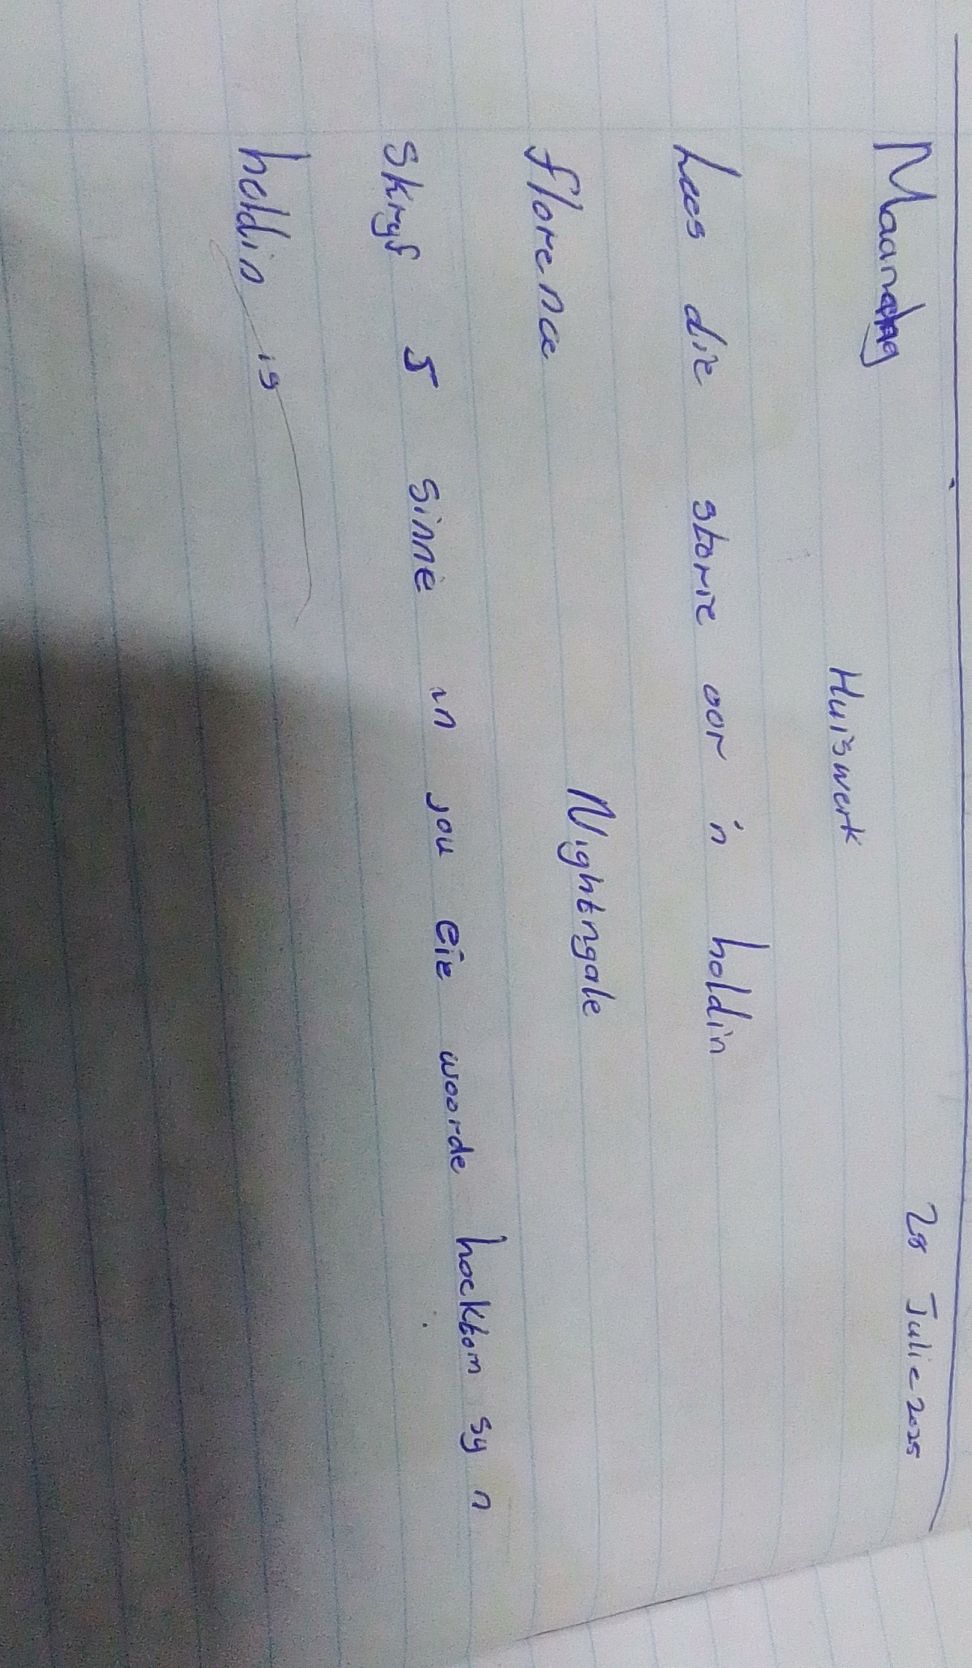 Maandag 28 Julie 2025
Huiswerk
Lees die storie oor 'n holdin
Florence Nightngale
Skryf 5 sinne in jou eie woorde hoekbom sy n
holdin is